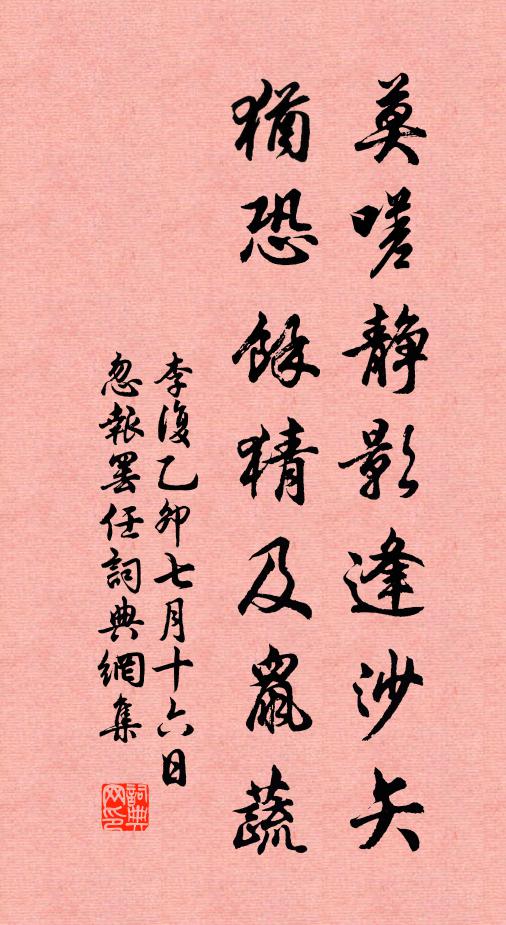 莫嗟静影逢沙矢
猶恐餘猜及鼠蔬
李復乙卯七月十六日
忽報罢任詞典網集
詞典网印